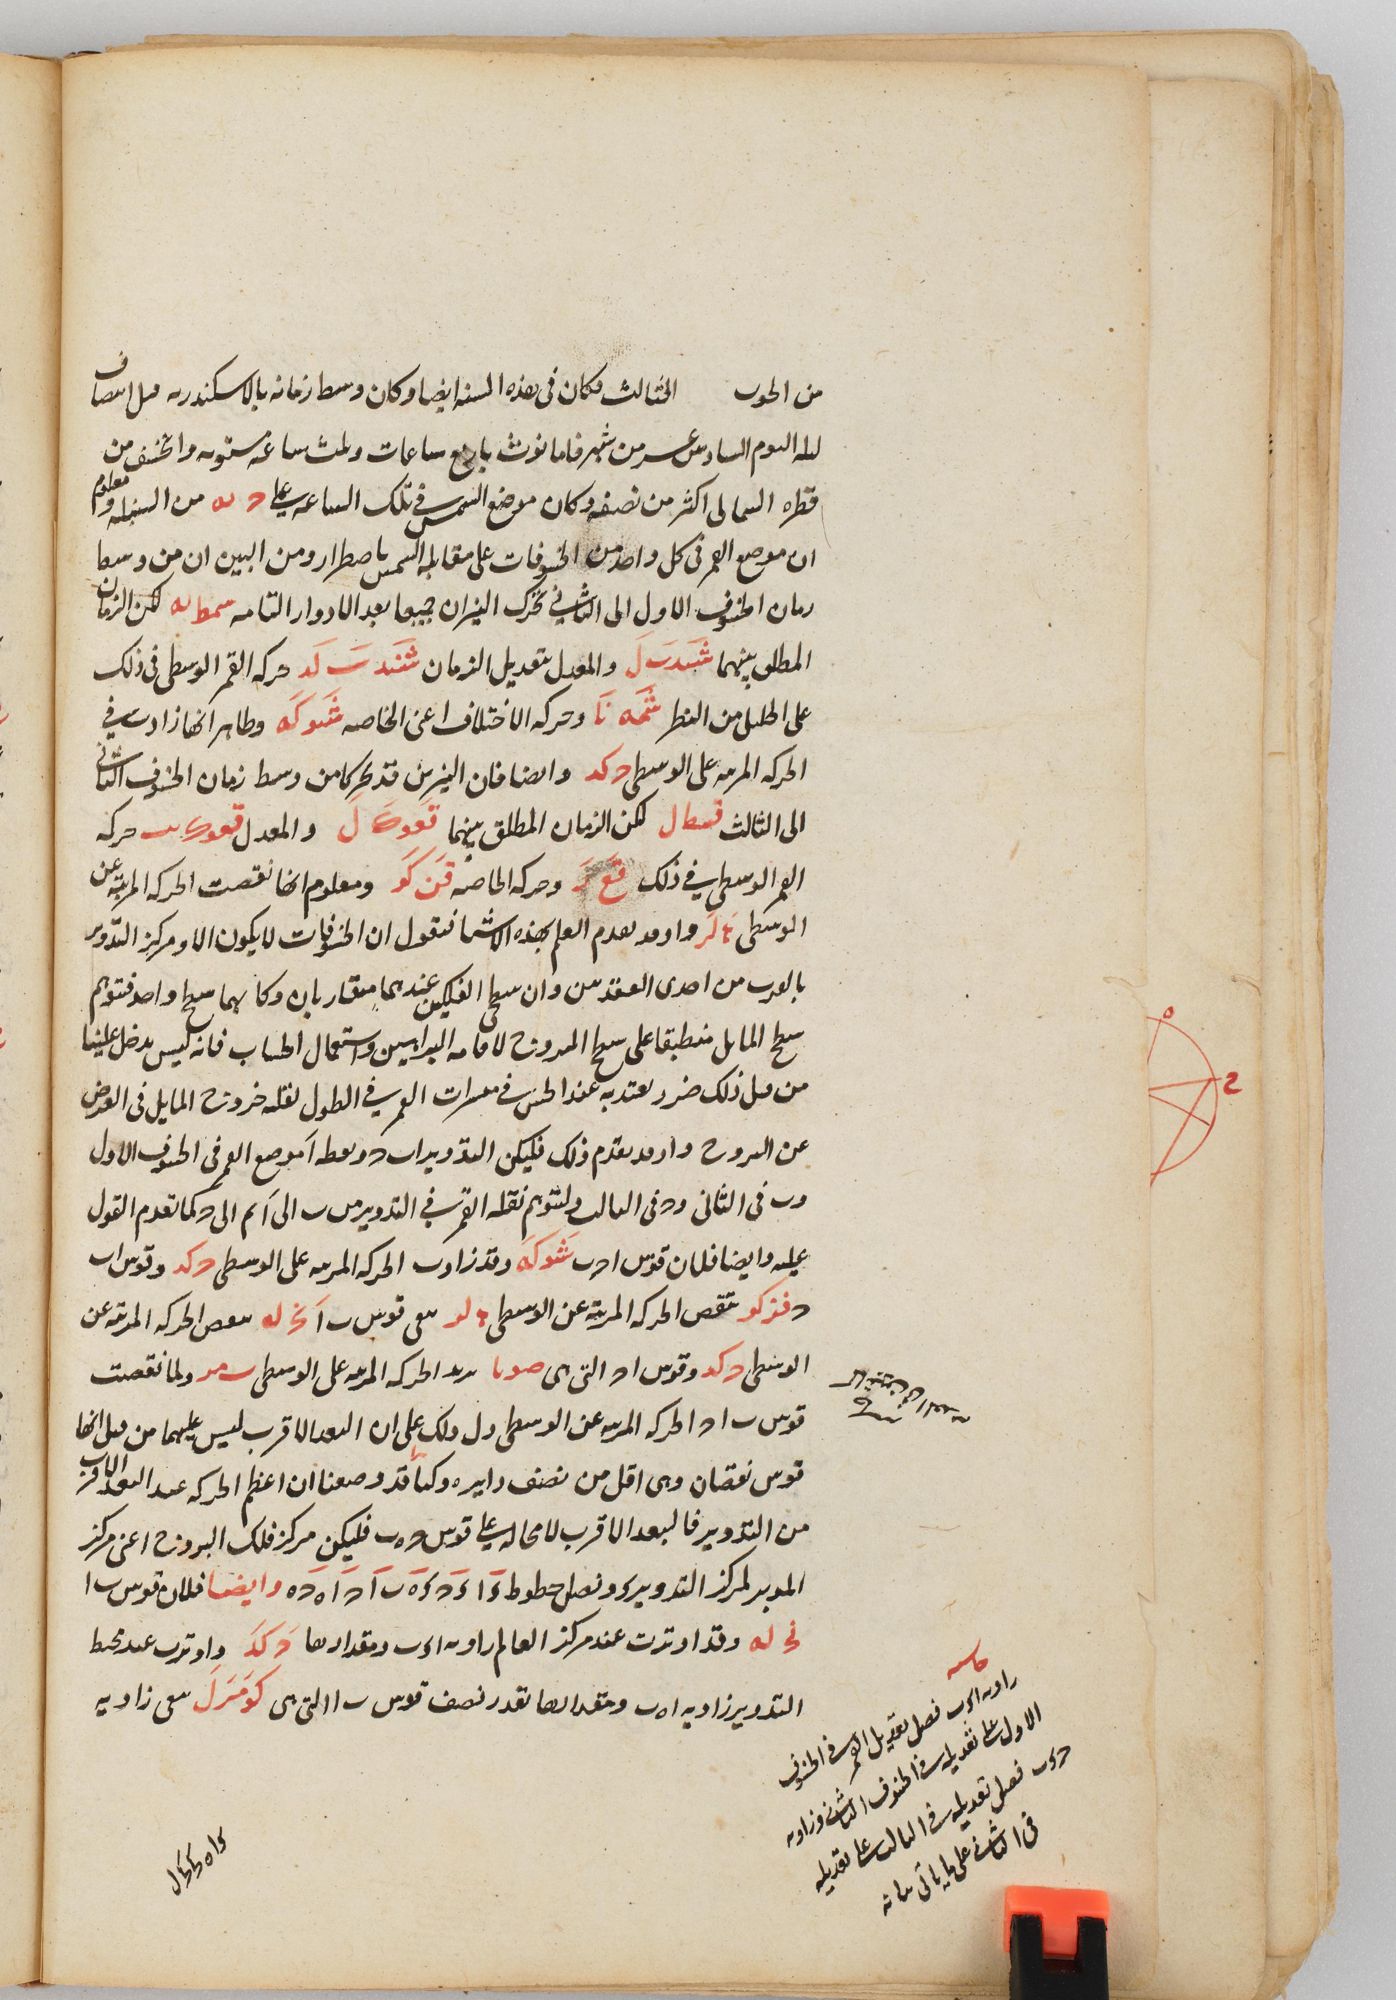 من الحوت الثالث فكان فى هذه السنه ايضا وكان وسط زمانه بالاسكندريه قبل انتصاف
ليله اليوم السادس عشر من شهر فامانوث باربع ساعات وثلث ساعه مستويه وانخسف من
قطره الشمالى اكثر من نصفه وكان موضع الشمس فى تلك الساعه على د يه من السنبله ومعلوم
ان موضع القمر فى كل واحد من الخسوفات على مقابله الشمس باضطرار ومن البين ان من وسط
زمان الخسوف الاول الى الثانى تحرك النيران جميعا بعد الادوار التامه سمط يه لكن الزمان
المطلق بينهما شند ب ل والمعدل بتعديل الزمان شند ب لد حركه القمر الوسطى فى ذلك
على الجليل من النظر شمه نا وحركه الاختلاف اعنى الخاصه شو كه وظاهر انها زادت فى
الحركه المرئيه على الوسطى د كد وايضا فان النيرين قد تحركا من وسط زمان الخسوف الثانى
الى الثالث قسط ل لكن الزمان المطلق بينهما قعو ك ل والمعدل قعو ك ب حركه
القمر الوسطى فى ذلك قع ز وحركه الخاصه قن كو ومعلوم انها نقصت الحركه المرئيه عن
الوسطى ه لز واذ قد تقدم العلم بهذه الاشيا فنقول ان الخسوفات لا يكون الا ومركز التدوير
بالقرب من احدى العقدتين وان سطحى الفلكين عندهما متقاربان وكانهما سطح واحد فنتوهم
سطح المايل منطبقا على سطح البروج لاقامه البراهين واستعمال الحساب فانه ليس يدخل علينا
من قبل ذلك ضرر يعتد به عند الحس فى مسيرات القمر فى الطول لقله خروج المايل فى العرض
عن البروج واذ قد تقدم ذلك فليكن التدوير ا ب د ونقطه ا موضع القمر فى الخسوف الاول
و ب فى الثانى و د فى الثالث ولنتوهم نقله القمر فى التدوير من ب الى ا ثم الى د كما تقدم القول
عليه وايضا فلان قوس ا د ب شو كه وقد زادت الحركه المرئيه على الوسطى د كد وقوس ا ب
د قن كو تنقص الحركه المرئيه عن الوسطى ه لز بقى قوس ب ا نج له ينقص الحركه المرئيه عن
الوسطى د كد وقوس ا د التى هى صو نا يزيد الحركه المرئيه على الوسطى ب مز ولما نقصت
قوس ب ا د الحركه المرئيه عن الوسطى دل ذلك على ان البعد الاقرب ليس عليهما من قبل انها
قوس نقصان وهى اقل من نصف دايره وكنا قد وضعنا ان اعظم الحركه عند البعد الاقرب
من التدوير فالبعد الاقرب لا محاله على قوس د ه ب فليكن مركز فلك البروج اعنى مركز
المدير لمركز التدوير ى ونصل خطوط ى ا ى د ى ه ب ا د ا ه د ه وايضا فلان قوس ب ا
نج له وقد اوترت عند مركز العالم زاويه ا ى ب ومقدارها د كد واوترت عند محيط
التدوير زاويه ا ه ب ومقدارها بقدر نصف قوس ب ا التى هى كو مز ل بقى زاويه
حاشيه
زاويه ا ى ب فضل تعديل القمر فى الخسوف
الاول على تعديله فى الخسوف الثانى وزاويه
د ى ب فضل تعديله فى الثالث على تعديله
فى الثانى على ما ياتى بيانه
ه
ح